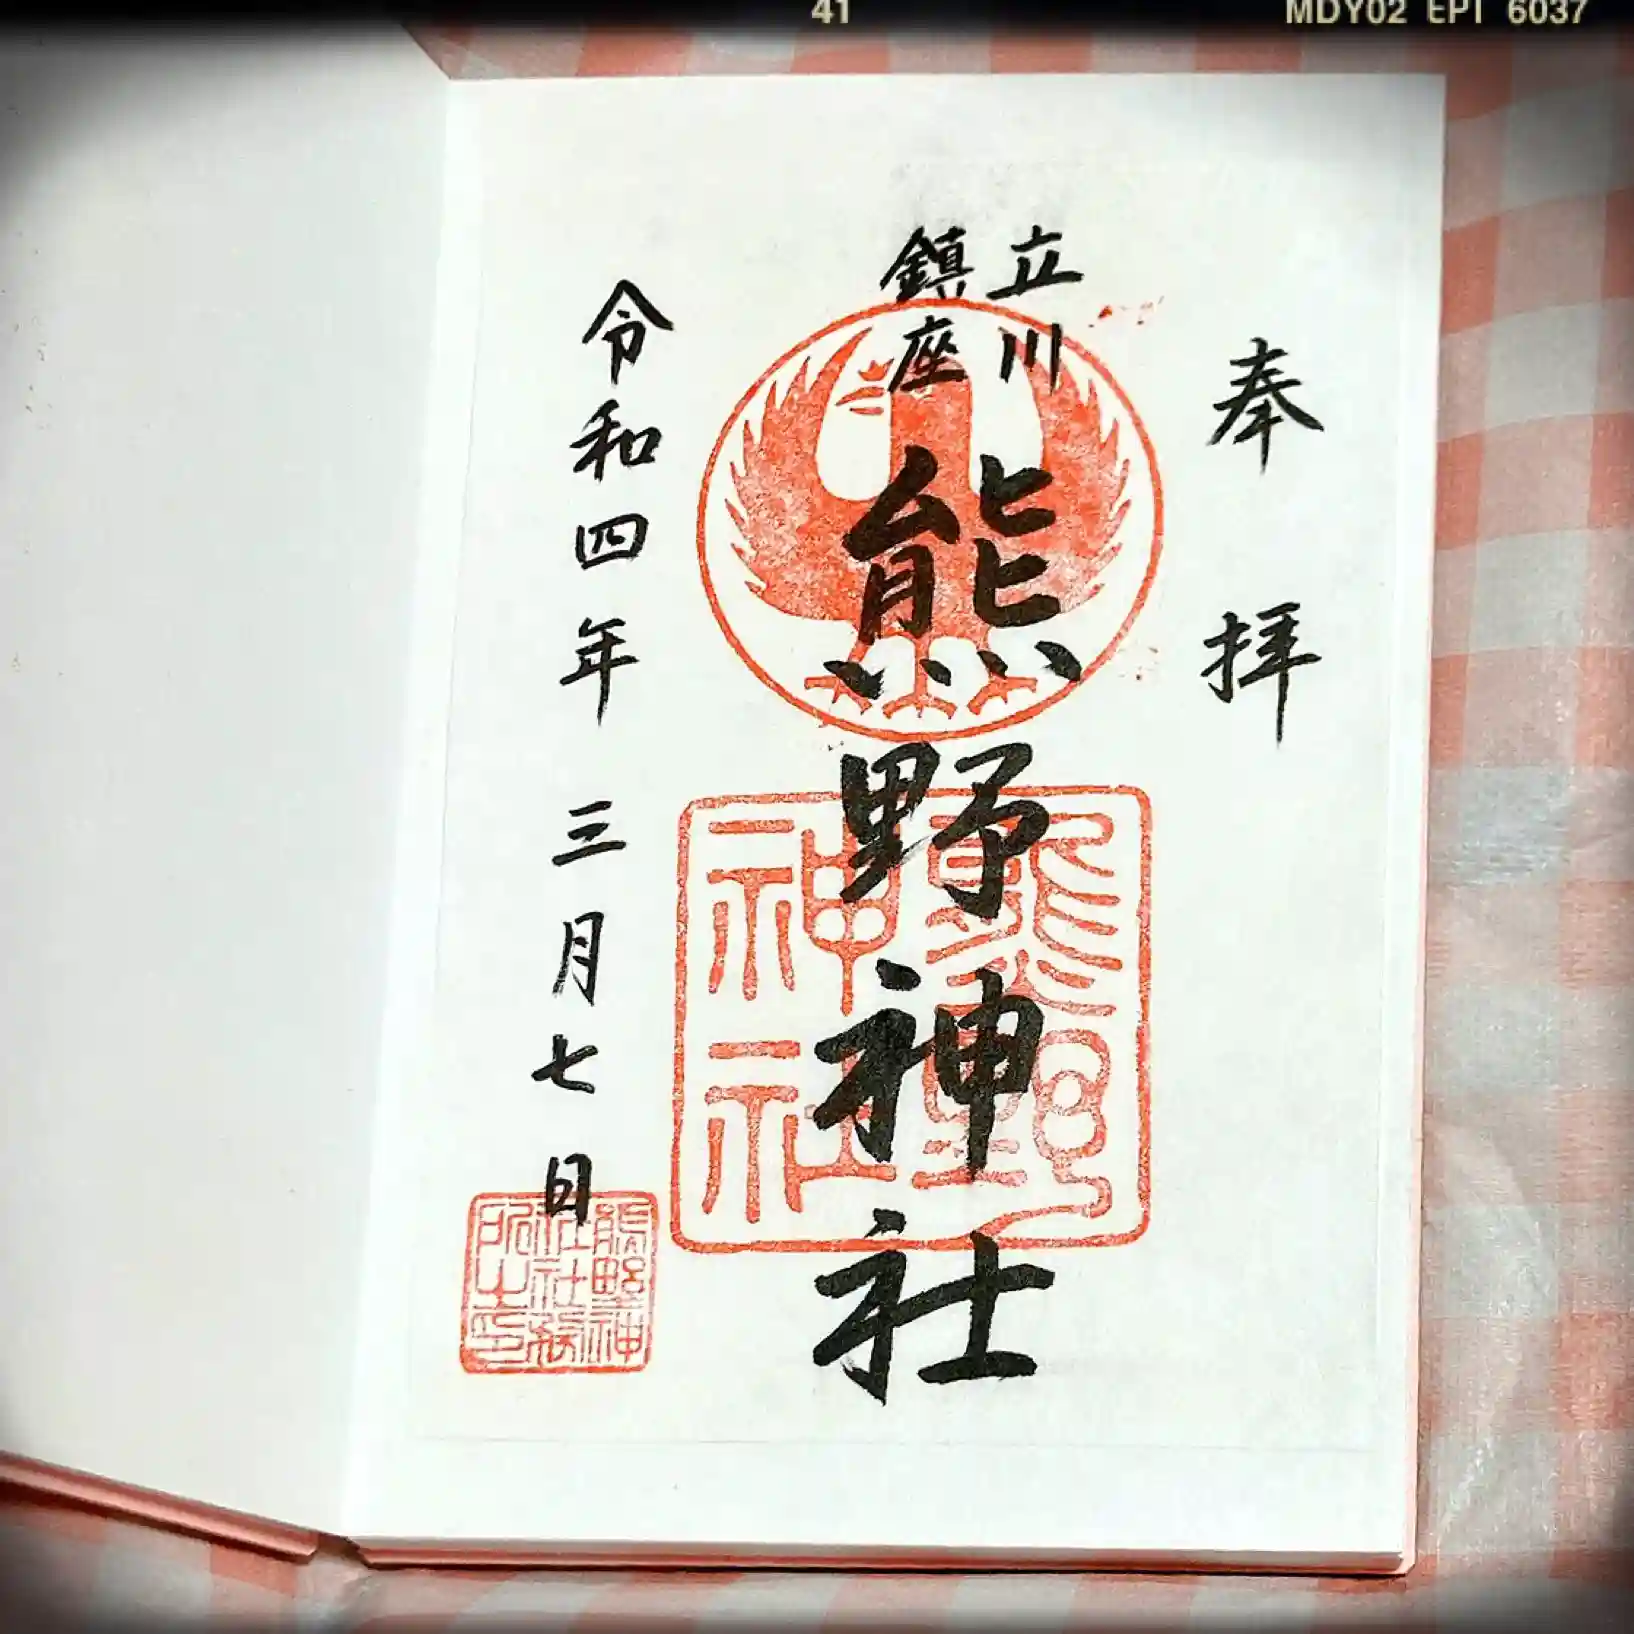 41
MDY02 EPI 6037
奉拝
立川
鎮座
熊野神社
令和四年三月七日
熊野
神社
熊野神
社社務
所之印